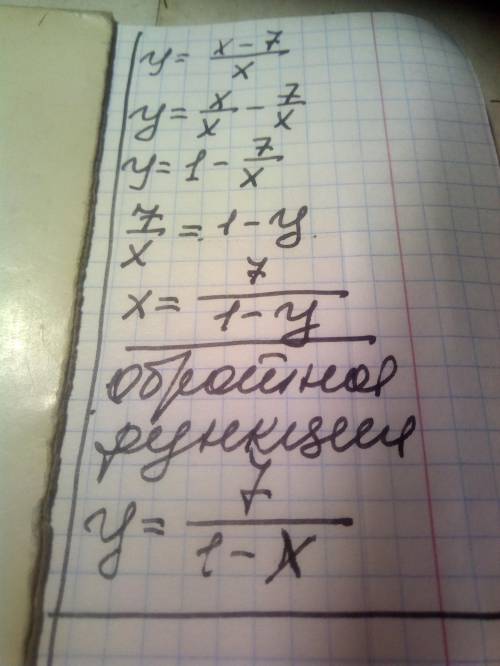 y = \frac{x-7}{x}
y = \frac{x}{x} - \frac{7}{x}
y = 1 - \frac{7}{x}
\frac{7}{x} = 1 - y
x = \frac{7}{1-y}
обратная
функция
y = \frac{7}{1-x}